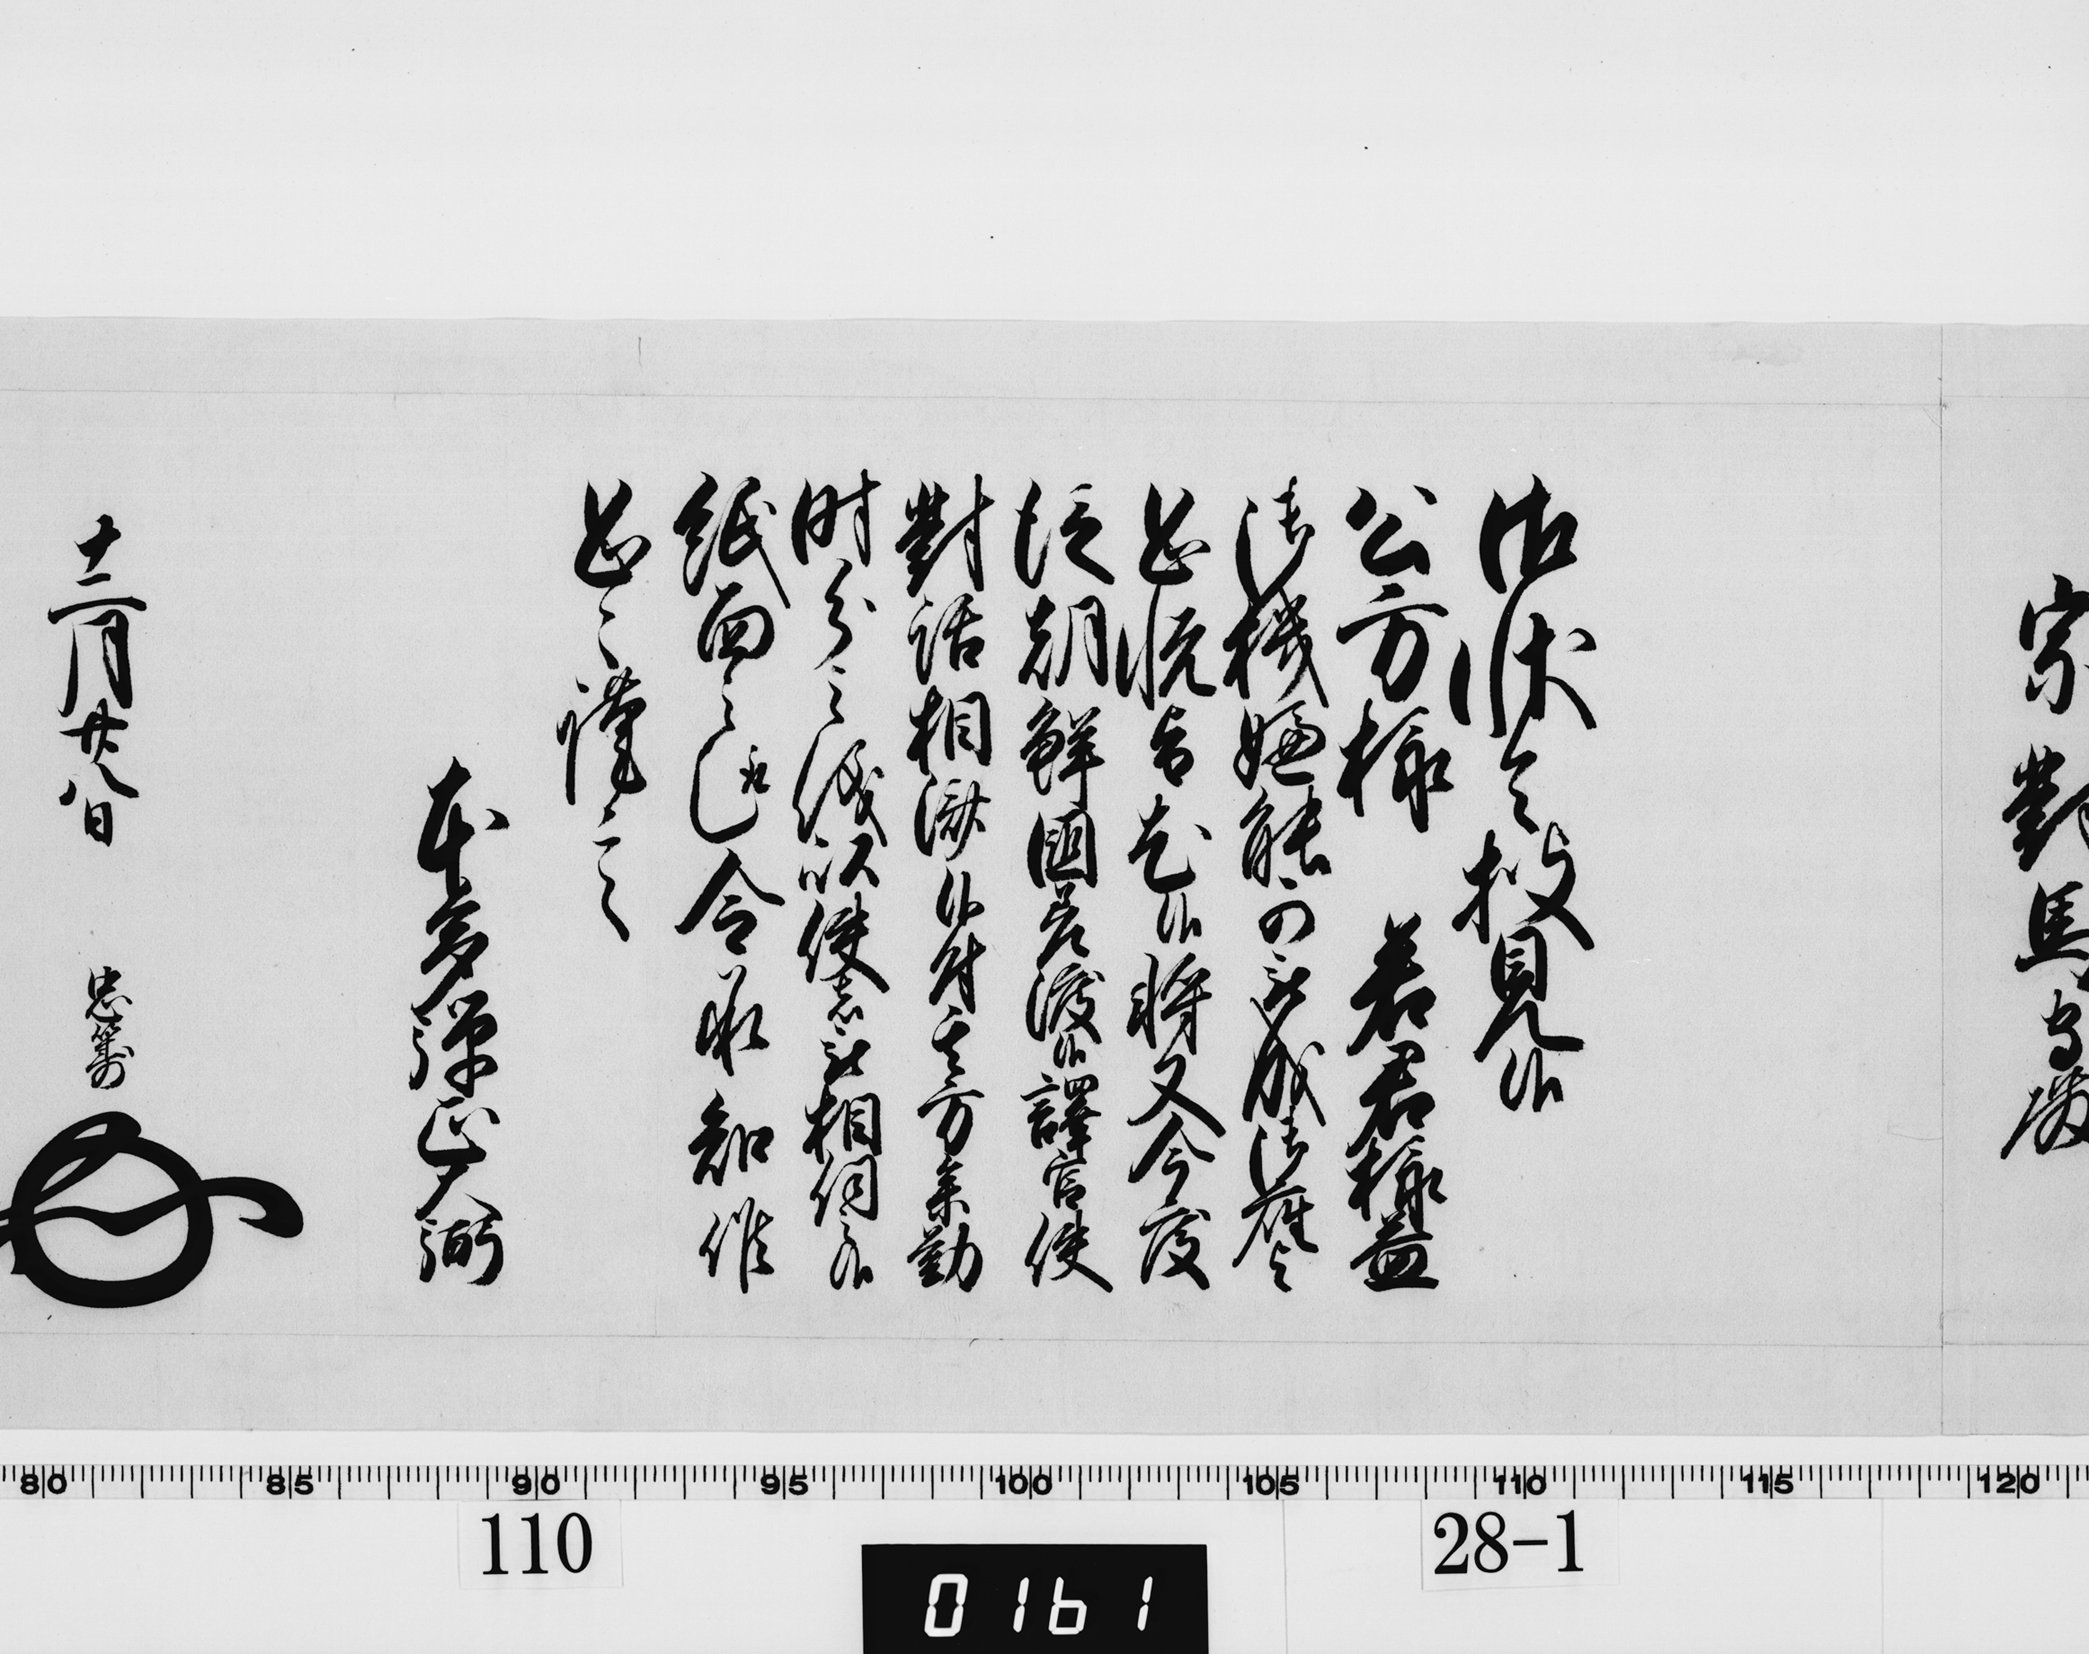 宗對馬守殿
御状令披見候
公方様　若君様益
御機嫌能可被成御座与
恐悦旨尤候将又今度
従朝鮮国差渡候譯官使
對話相済候付其方参勤
時分之儀以使者被相伺候
紙面之趣令承知候
恐々謹言
本多弾正大弼
十二月廿八日
忠籌
80 85 90 95 100 105 110 115 120
110
28-1
0161